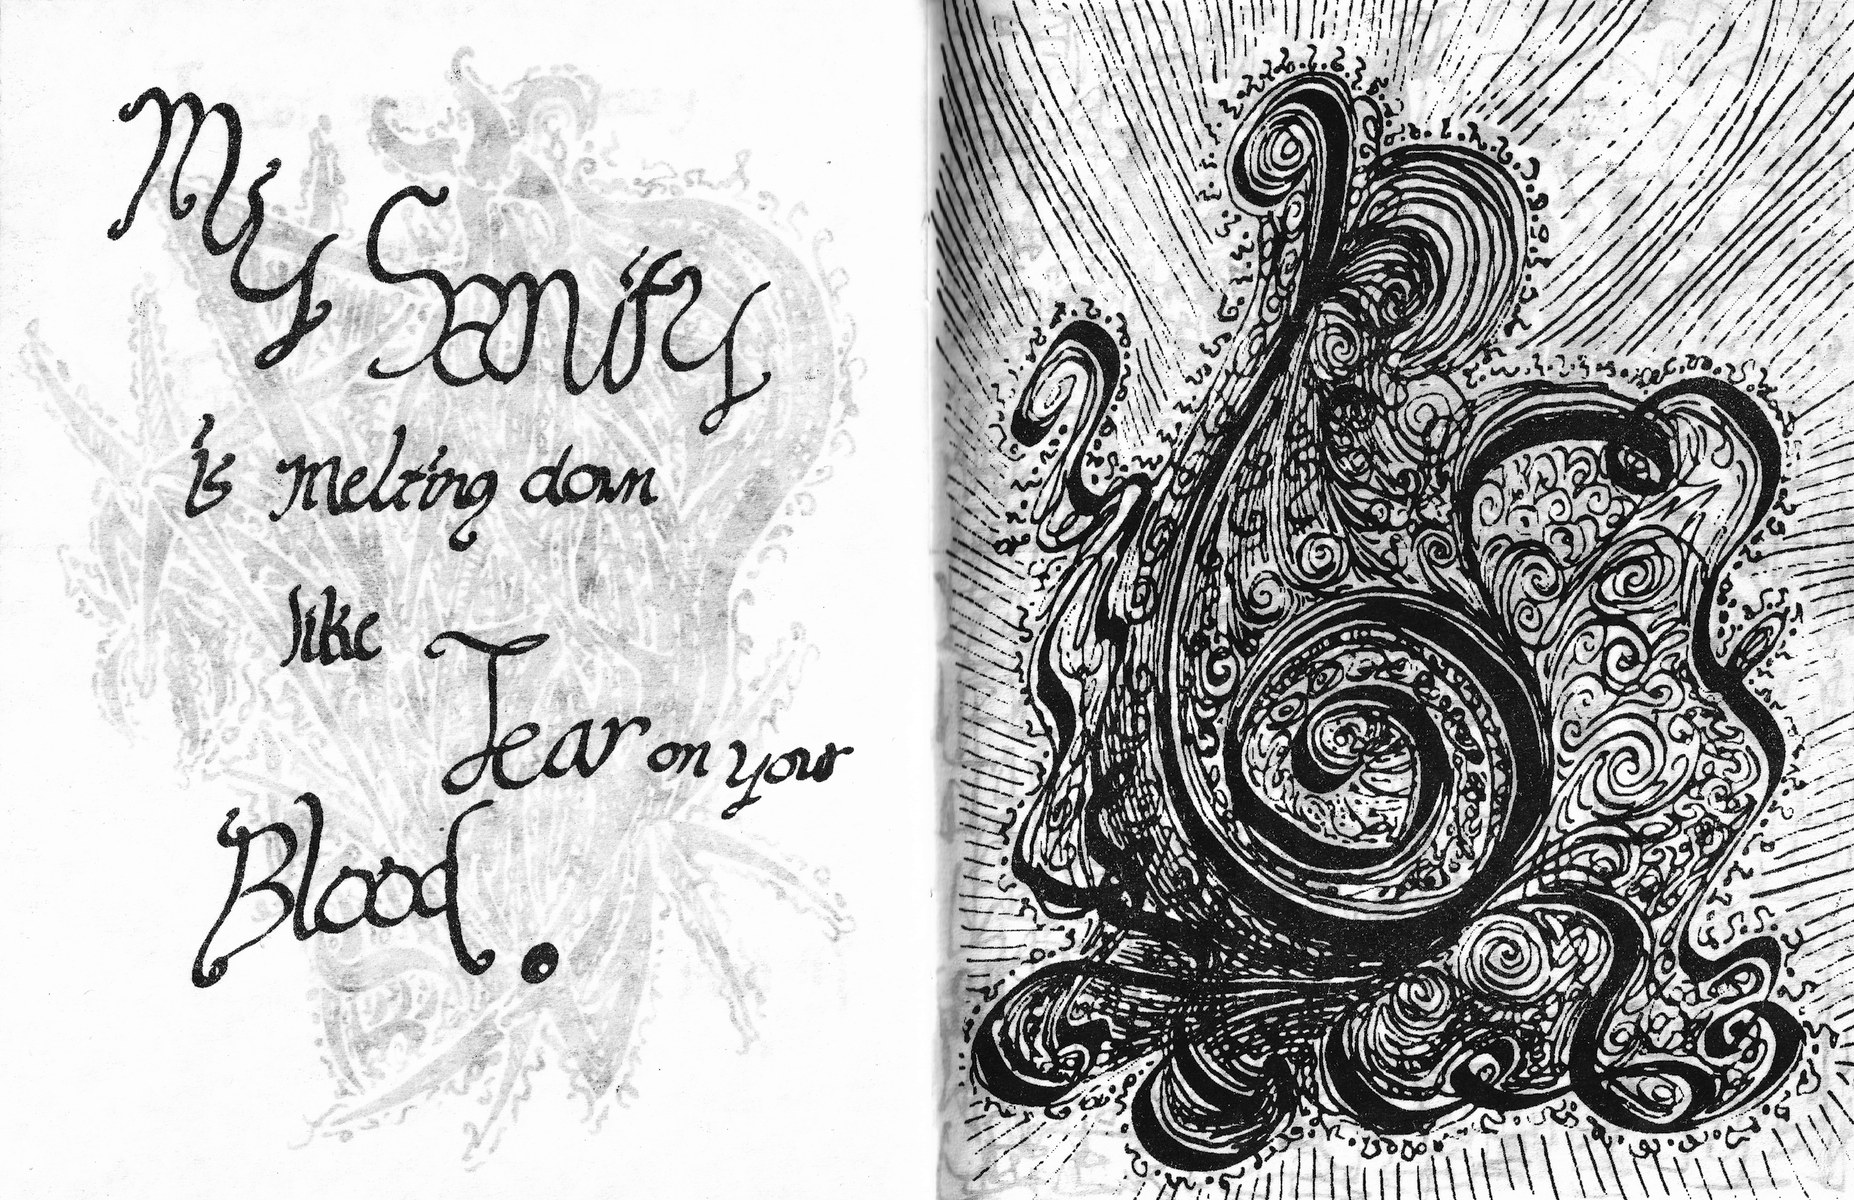 My Sanity
is melting down
like Tear on your
Blood.